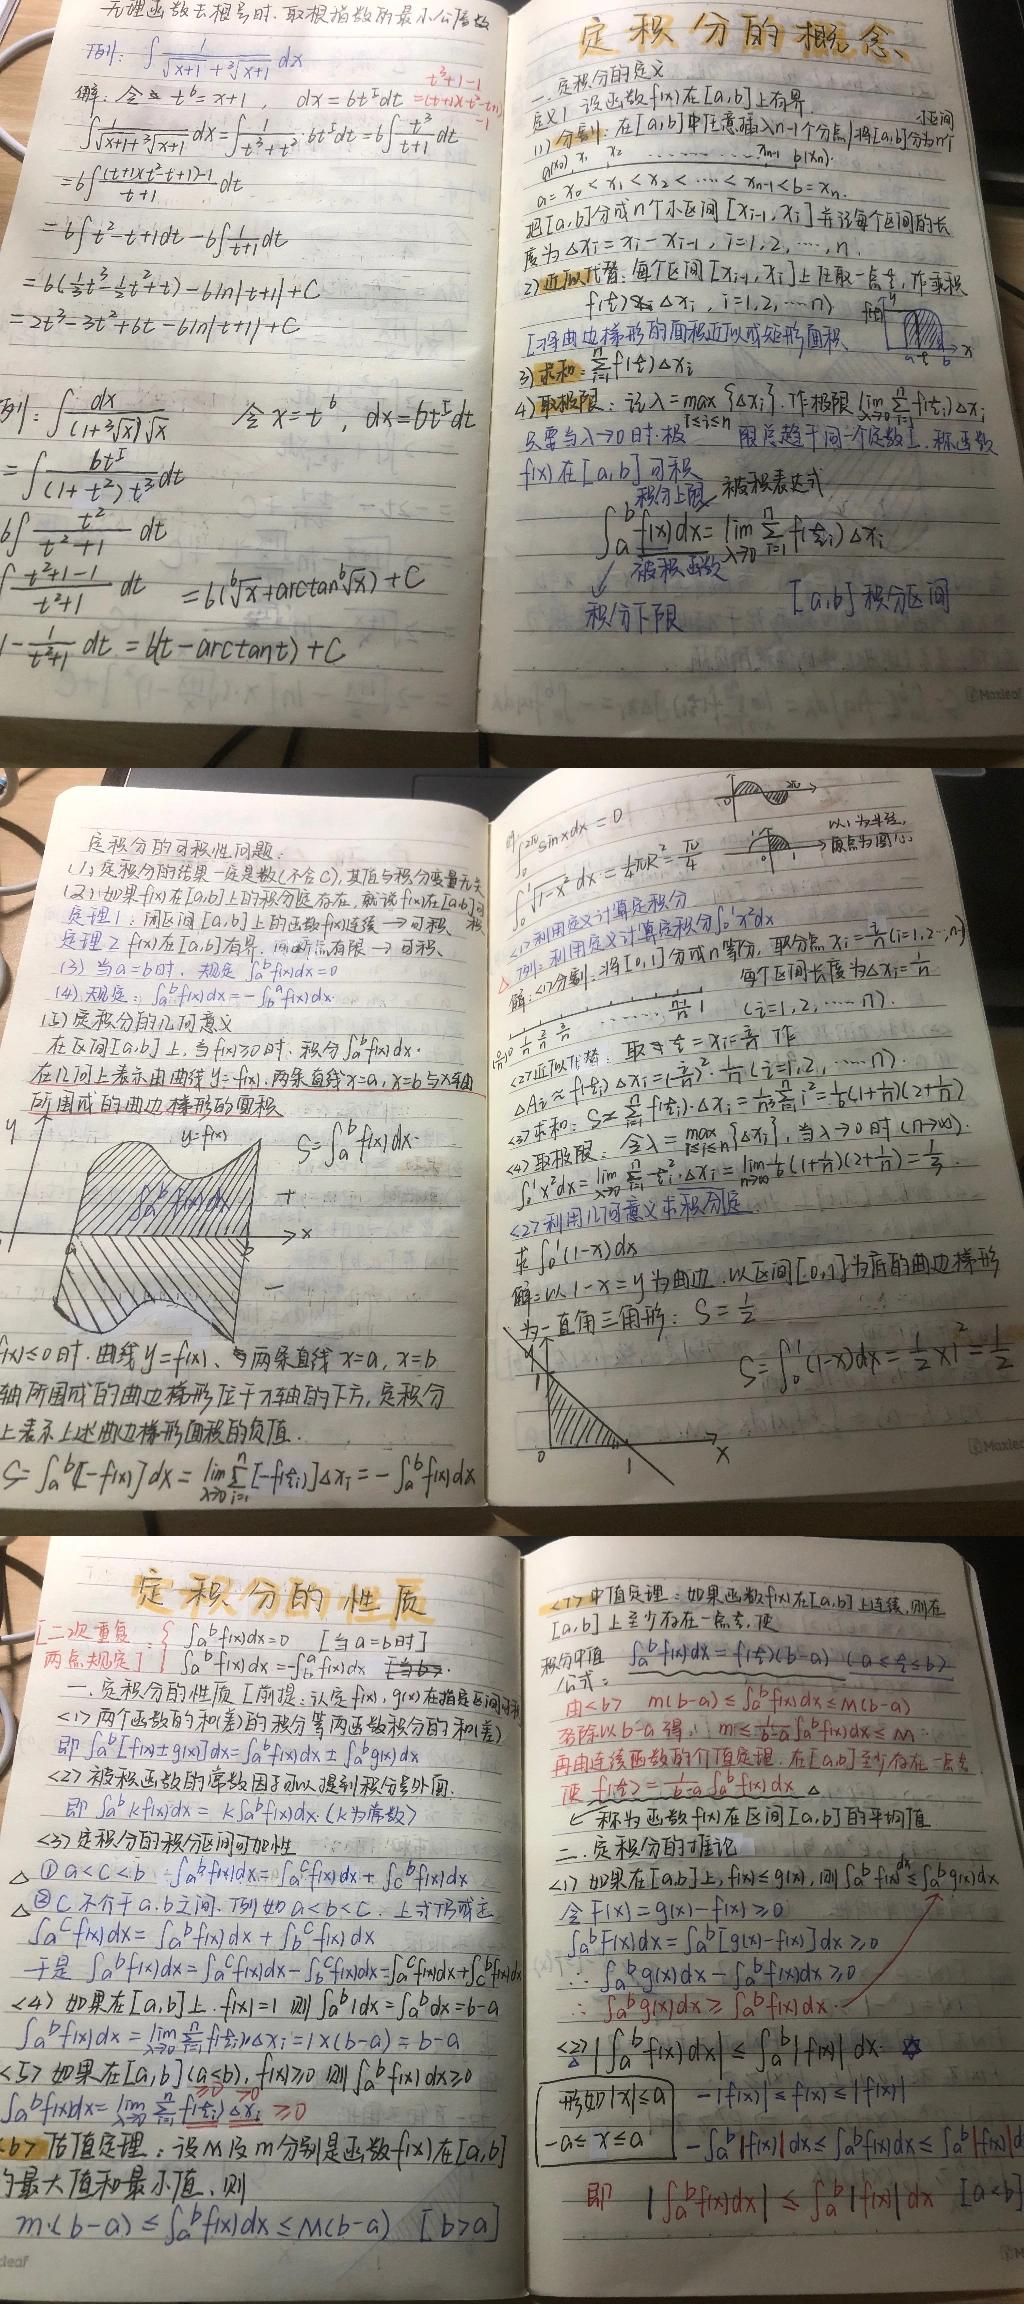 无理函数去根号时.取根指数的最小公倍数
例: ∫ 1/(√(x+1) + ³√(x+1)) dx
t³+1-1
解: 令 t⁶ = x+1 , dx = 6t⁵dt = (t+1)(t²-t+1)-1
∫ 1/(√(x+1)+³√(x+1)) dx = ∫ 1/(t³+t²)·6t⁵dt = 6∫ t³/(t+1) dt
= 6∫ ((t+1)(t²-t+1)-1)/(t+1) dt
= 6∫ t²-t+1dt - 6∫ 1/(t+1) dt
= 6(⅓t³-½t²+t) - 6ln|t+1|+C
= 2t³-3t²+6t-6ln|t+1|+C
例: ∫ dx/((1+³√x)√x) 令 x=t⁶, dx=6t⁵dt
= ∫ 6t⁵/((1+t²)t³) dt
6∫ t²/(t²+1) dt
∫ (t²+1-1)/(t²+1) dt = 6(⁶√x+arctan⁶√x)+C
1 - 1/(t²+1) dt = 6(t-arctant)+C
定积分的概念、
一.定积分的定义
定义1 设函数f(x)在[a,b]上有界.
(1)分割: 在[a,b]中任意插入n-1个分点,将[a,b]分为n个小区间
a(x₀) x₁ x₂ ········ xₙ₋₁ b(xₙ).
a = x₀ < x₁ < x₂ < ···· < xₙ₋₁ < b = xₙ.
把[a,b]分成n个小区间[xᵢ₋₁, xᵢ]并记每个区间的长
度为Δxᵢ = xᵢ - xᵢ₋₁, i=1,2,····,n.
2)近似代替: 每个区间[xᵢ₋₁, xᵢ]上任取一点ξ, 作乘积
f(ξ) Δxᵢ, i=1,2,····n)
[将曲边梯形的面积近似成矩形面积、
f(ξ) y a ξ b x
3)求和: Σⁿᵢ₌₁ f(ξ)Δxᵢ
4)取极限: 记λ = max{Δxᵢ}. 1≤i≤n 作极限 lim λ→0 Σⁿᵢ₌₁ f(ξᵢ)Δxᵢ
只要当λ→0时.极 限总趋于同一个定数I.称函数
f(x)在[a,b]可积
积分上限 被积表达式
∫ₐᵇ f(x)dx = lim λ→0 Σⁿᵢ₌₁ f(ξᵢ)Δxᵢ
被积函数
积分下限 [a,b]积分区间
Maxleaf
定积分的可积性问题:
(1)定积分的结果一定是数(不含C),其值与积分变量无关
(2)如果f(x)在[a,b]上的积分定存在.就说f(x)在[a,b]可积
定理1: 闭区间[a,b]上的函数f(x)连续→可积
定理2 f(x)在[a,b]有界.间断点有限→可积、
(3)当a=b时, 规定 ∫ₐᵇ f(x)dx=0
(4)规定: ∫ₐᵇ f(x)dx = -∫ᵇᵃ f(x)dx.
(5)定积分的几何意义
在区间[a,b]上,当f(x)≥0时.积分∫ₐᵇ f(x)dx.
在几何上表示由曲线y=f(x).两条直线x=a,x=b与x轴
所围成的曲边梯形的面积
y y=f(x) S=∫ₐᵇ f(x)dx.
∫ₐᵇ f(x)dx +
a b x
-
f(x)≤0时.曲线y=f(x)、与两条直线x=a,x=b
轴所围成的曲边梯形位于x轴的下方,定积分
上表示上述曲边梯形面积的负值.
S=∫ₐᵇ[-f(x)]dx = lim λ→0 Σⁿᵢ₌₁[-f(ξᵢ)]Δxᵢ = -∫ₐᵇ f(x)dx
例: ∫₀^2π sinxdx = 0 0 2π
∫₀¹ √(1-x²) dx = ¼πR² = π/4 以1为半径,原点为圆心.
<1>利用定义计算定积分
例: 利用定义计算定积分∫₀¹x²dx
△ 解: <1>分割: 将[0,1]分成n等分, 取分点xᵢ=i/n (i=1,2···,n-1)
每个区间长度为Δxᵢ=1/n
0 1/n 2/n 3/n ······· (n-1)/n 1 (i=1,2,····n).
<2>近似代替: 取 ξ=xᵢ=i/n 作
ΔAᵢ≈f(ξᵢ)Δxᵢ=(i/n)²·1/n (i=1,2,····n).
<3>求和: S≈Σⁿᵢ₌₁ f(ξᵢ)·Δxᵢ=1/n³ Σⁿᵢ₌₁ i²=⅙(1+1/n)(2+1/n)
<4>取极限: 令λ=max{Δxᵢ}, 1≤i≤n 当λ→0时(n→∞).
∫₀¹x²dx=lim λ→0 Σⁿᵢ₌₁ ξᵢ²·Δxᵢ=lim n→∞ ⅙(1+1/n)(2+1/n)=⅓.
<2>利用几何意义求积分定
求∫₀¹(1-x)dx
解: 以1-x=y为曲边.以区间[0,1]为底的曲边梯形
为一直角三角形: S=½
S=∫₀¹(1-x)dx=½×1²=½
y 1 0 1 x
Maxleaf
定积分的性质
[二次重复: { ∫ₐᵇ f(x)dx=0 [当a=b时]
两点规定] ∫ₐᵇ f(x)dx=-∫ᵇᵃ f(x)dx
一.定积分的性质[前提:认定f(x),g(x)在指定区间可积
<1>两个函数的和(差)的积分等两函数积分的和(差)
即∫ₐᵇ[f(x)±g(x)]dx=∫ₐᵇf(x)dx±∫ₐᵇg(x)dx
<2>被积函数的常数因子可以提到积分号外面.
即 ∫ₐᵇkf(x)dx = k∫ₐᵇf(x)dx.(k为常数)
<3>定积分的积分区间可加性
△ ① a<c<b ∫ₐᵇf(x)dx=∫ₐᶜf(x)dx+∫ᶜᵇf(x)dx
△ ② C不介于a.b之间.例如a<b<c. 上式仍成立
∫ₐᶜf(x)dx=∫ₐᵇf(x)dx+∫ᵇᶜf(x)dx
于是 ∫ₐᵇf(x)dx=∫ₐᶜf(x)dx-∫ᵇᶜf(x)dx=∫ₐᶜf(x)dx+∫ᶜᵇf(x)dx
<4>如果在[a,b]上.f(x)=1 则∫ₐᵇ1dx=∫ₐᵇdx=b-a
∫ₐᵇf(x)dx=lim λ→0 Σⁿᵢ₌₁f(ξᵢ)Δxᵢ=1×(b-a)=b-a
<5>如果在[a,b](a<b),f(x)≥0 则∫ₐᵇf(x)dx≥0
≥0 >0
∫ₐᵇf(x)dx=lim λ→0 Σⁿᵢ₌₁ f(ξᵢ)Δxᵢ ≥0
<6>估值定理: 设M及m分别是函数f(x)在[a,b]
的最大值和最小值.则
m·(b-a)≤∫ₐᵇf(x)dx≤M(b-a) [b>a]
<7>中值定理: 如果函数f(x)在[a,b]上连续,则在
[a,b]上至少存在一点ξ,使
积分中值公式: ∫ₐᵇf(x)dx=f(ξ)(b-a) (a≤ξ≤b)
由<6> m(b-a)≤∫ₐᵇf(x)dx≤M(b-a)
各除以b-a得: m≤1/(b-a) ∫ₐᵇf(x)dx≤M
再由连续函数的介值定理.在[a,b]至少存在一点ξ
使 f(ξ)=1/(b-a) ∫ₐᵇf(x)dx △
称为函数f(x)在区间[a,b]的平均值
二.定积分的推论
<1>如果在[a,b]上,f(x)≤g(x),则∫ₐᵇf(x)dx≤∫ₐᵇg(x)dx
令F(x)=g(x)-f(x)≥0
∫ₐᵇF(x)dx=∫ₐᵇ[g(x)-f(x)]dx≥0
∴ ∫ₐᵇg(x)dx-∫ₐᵇf(x)dx≥0
∴ ∫ₐᵇg(x)dx≥∫ₐᵇf(x)dx.
<2> |∫ₐᵇf(x)dx|≤∫ₐᵇ|f(x)|dx. ✡
△
形如|x|≤a -|f(x)|≤f(x)≤|f(x)|
-a≤x≤a -∫ₐᵇ|f(x)|dx≤∫ₐᵇf(x)dx≤∫ₐᵇ|f(x)|d
即 |∫ₐᵇf(x)dx|≤∫ₐᵇ|f(x)|dx [a<b]